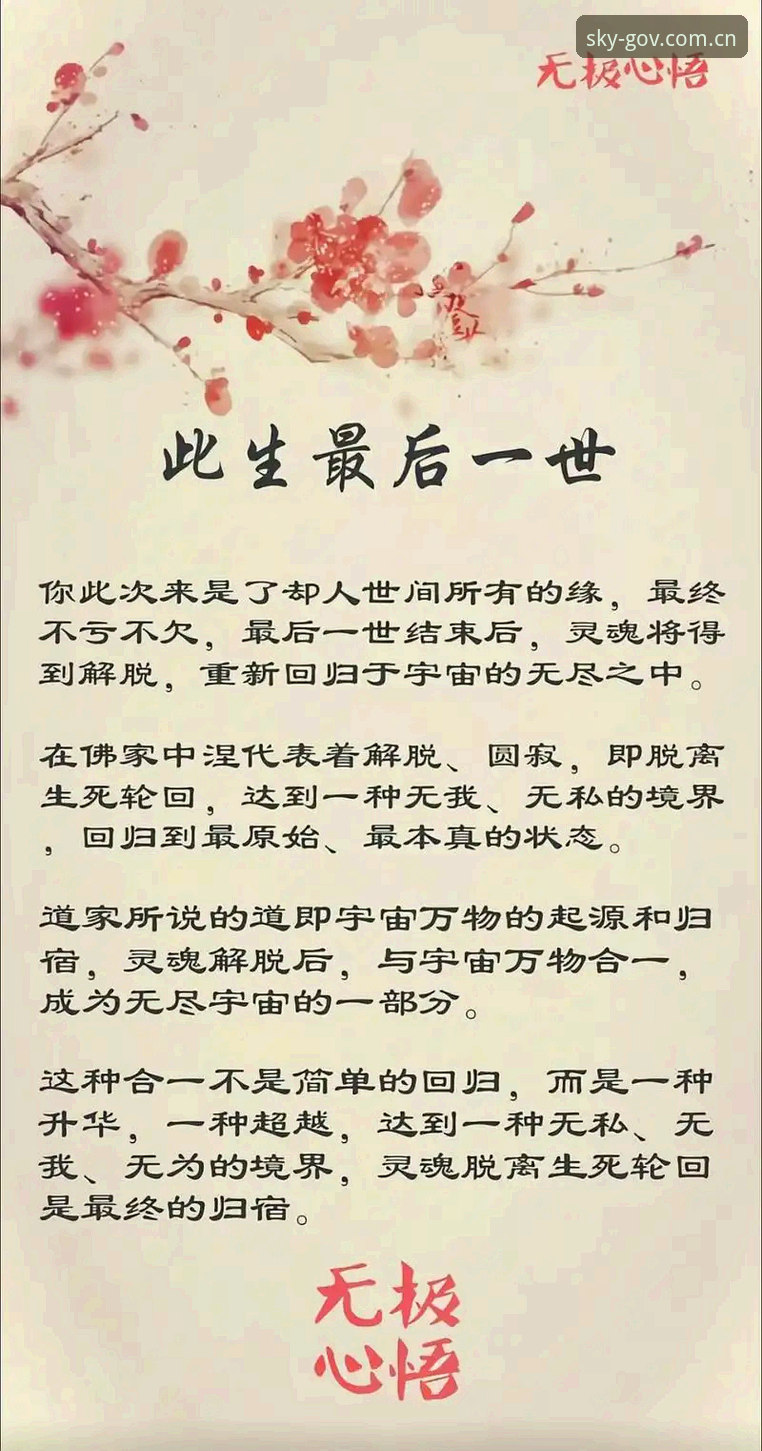 sky-gov.com.cn
无极心悟
此生最后一世
你此次来是了却人世间所有的缘，最终
不亏不欠，最后一世结束后，灵魂将得
到解脱，重新回归于宇宙的无尽之中。
在佛家中涅代表着解脱、圆寂，即脱离
生死轮回，达到一种无我、无私的境界
，回归到最原始、最本真的状态。
道家所说的道即宇宙万物的起源和归
宿，灵魂解脱后，与宇宙万物合一，
成为无尽宇宙的一部分。
这种合一不是简单的回归，而是一种
升华，一种超越，达到一种无私、无
我、无为的境界，灵魂脱离生死轮回
是最终的归宿。
无极
心悟